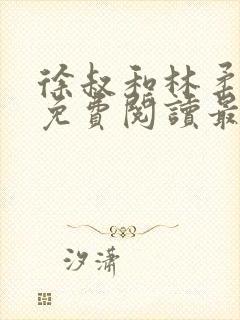 徐叔和林柔
免費閱讀最
汐瀟